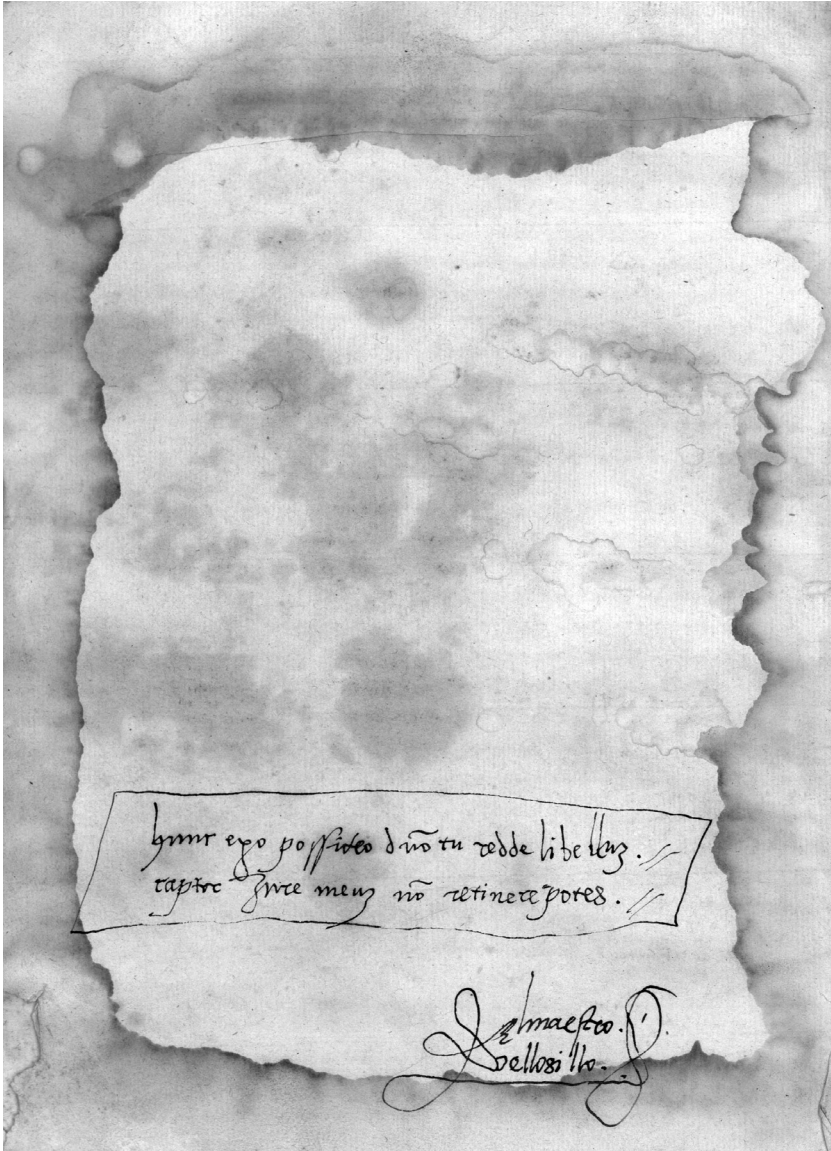 hunc ego possideo dnõ tu redde libelluz. //
raptor jure meuz nõ retinere potes. //
El maestro.
vellosillo.